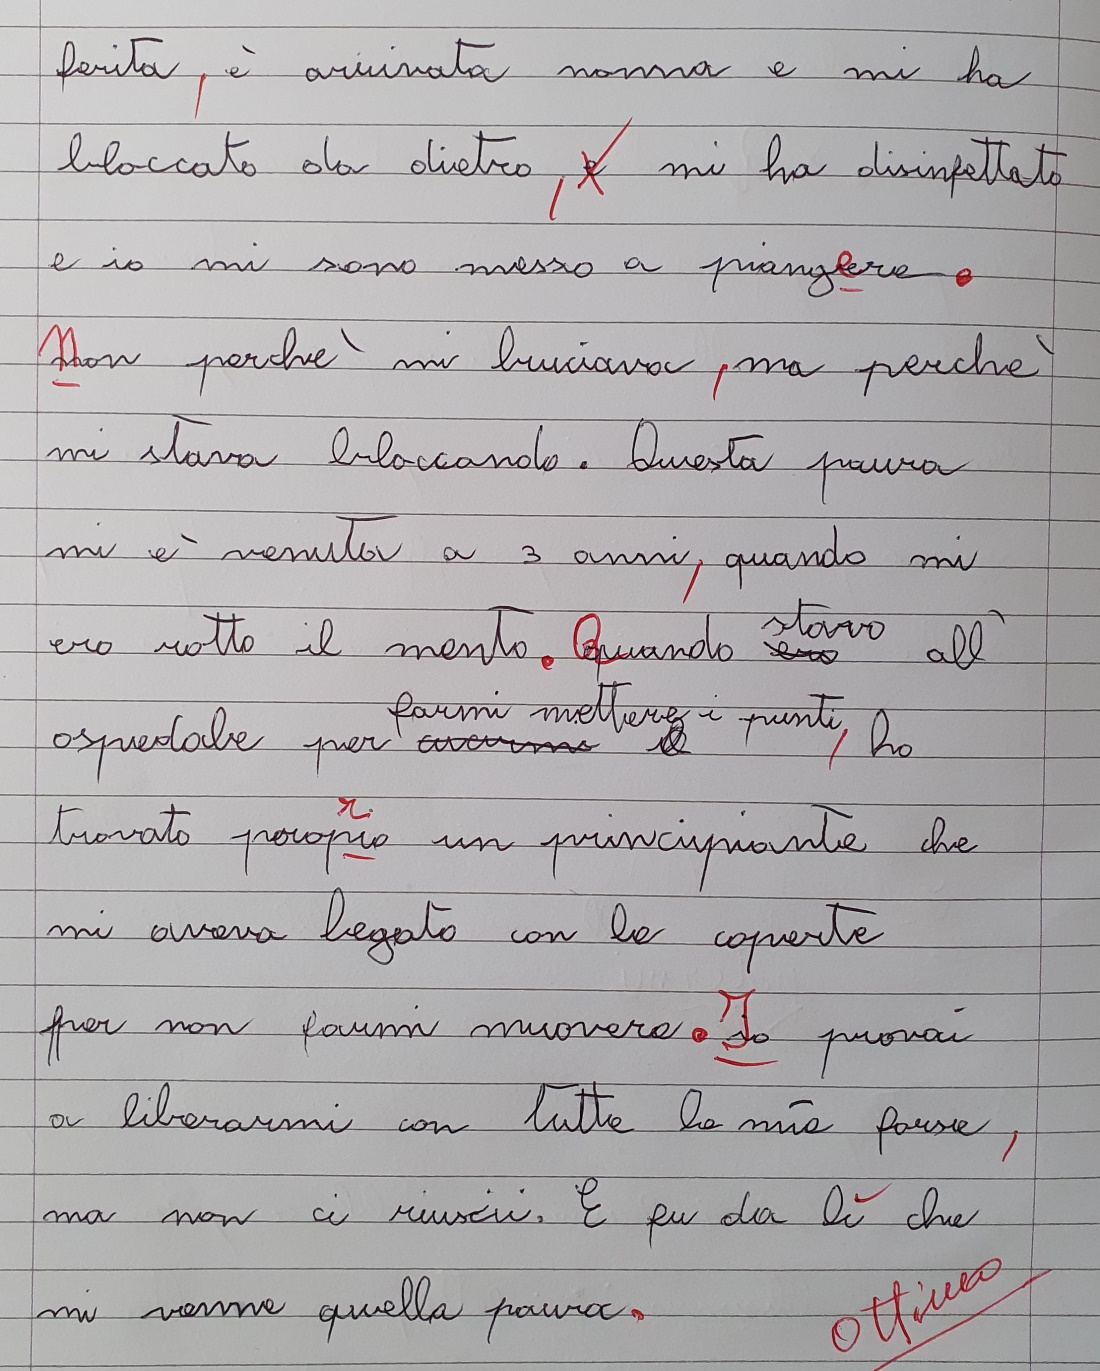 ferita, è arrivata nonna e mi ha
bloccato da dietro, mi ha disinfettato
e io mi sono messo a piangere.
Non perchè mi bruciava, ma perchè
mi stava bloccando. Questa paura
mi è venuta a 3 anni, quando mi
ero rotto il mento. Quando stavo all'
ospedale per farmi mettere i punti, ho
trovato poropio un principiante che
mi aveva legato con le coperte
per non farmi muovere. Io provai
a liberarmi con tutte le mie forse,
ma non ci riuscii. E fu da lì che
mi venne quella paura.
ottimo